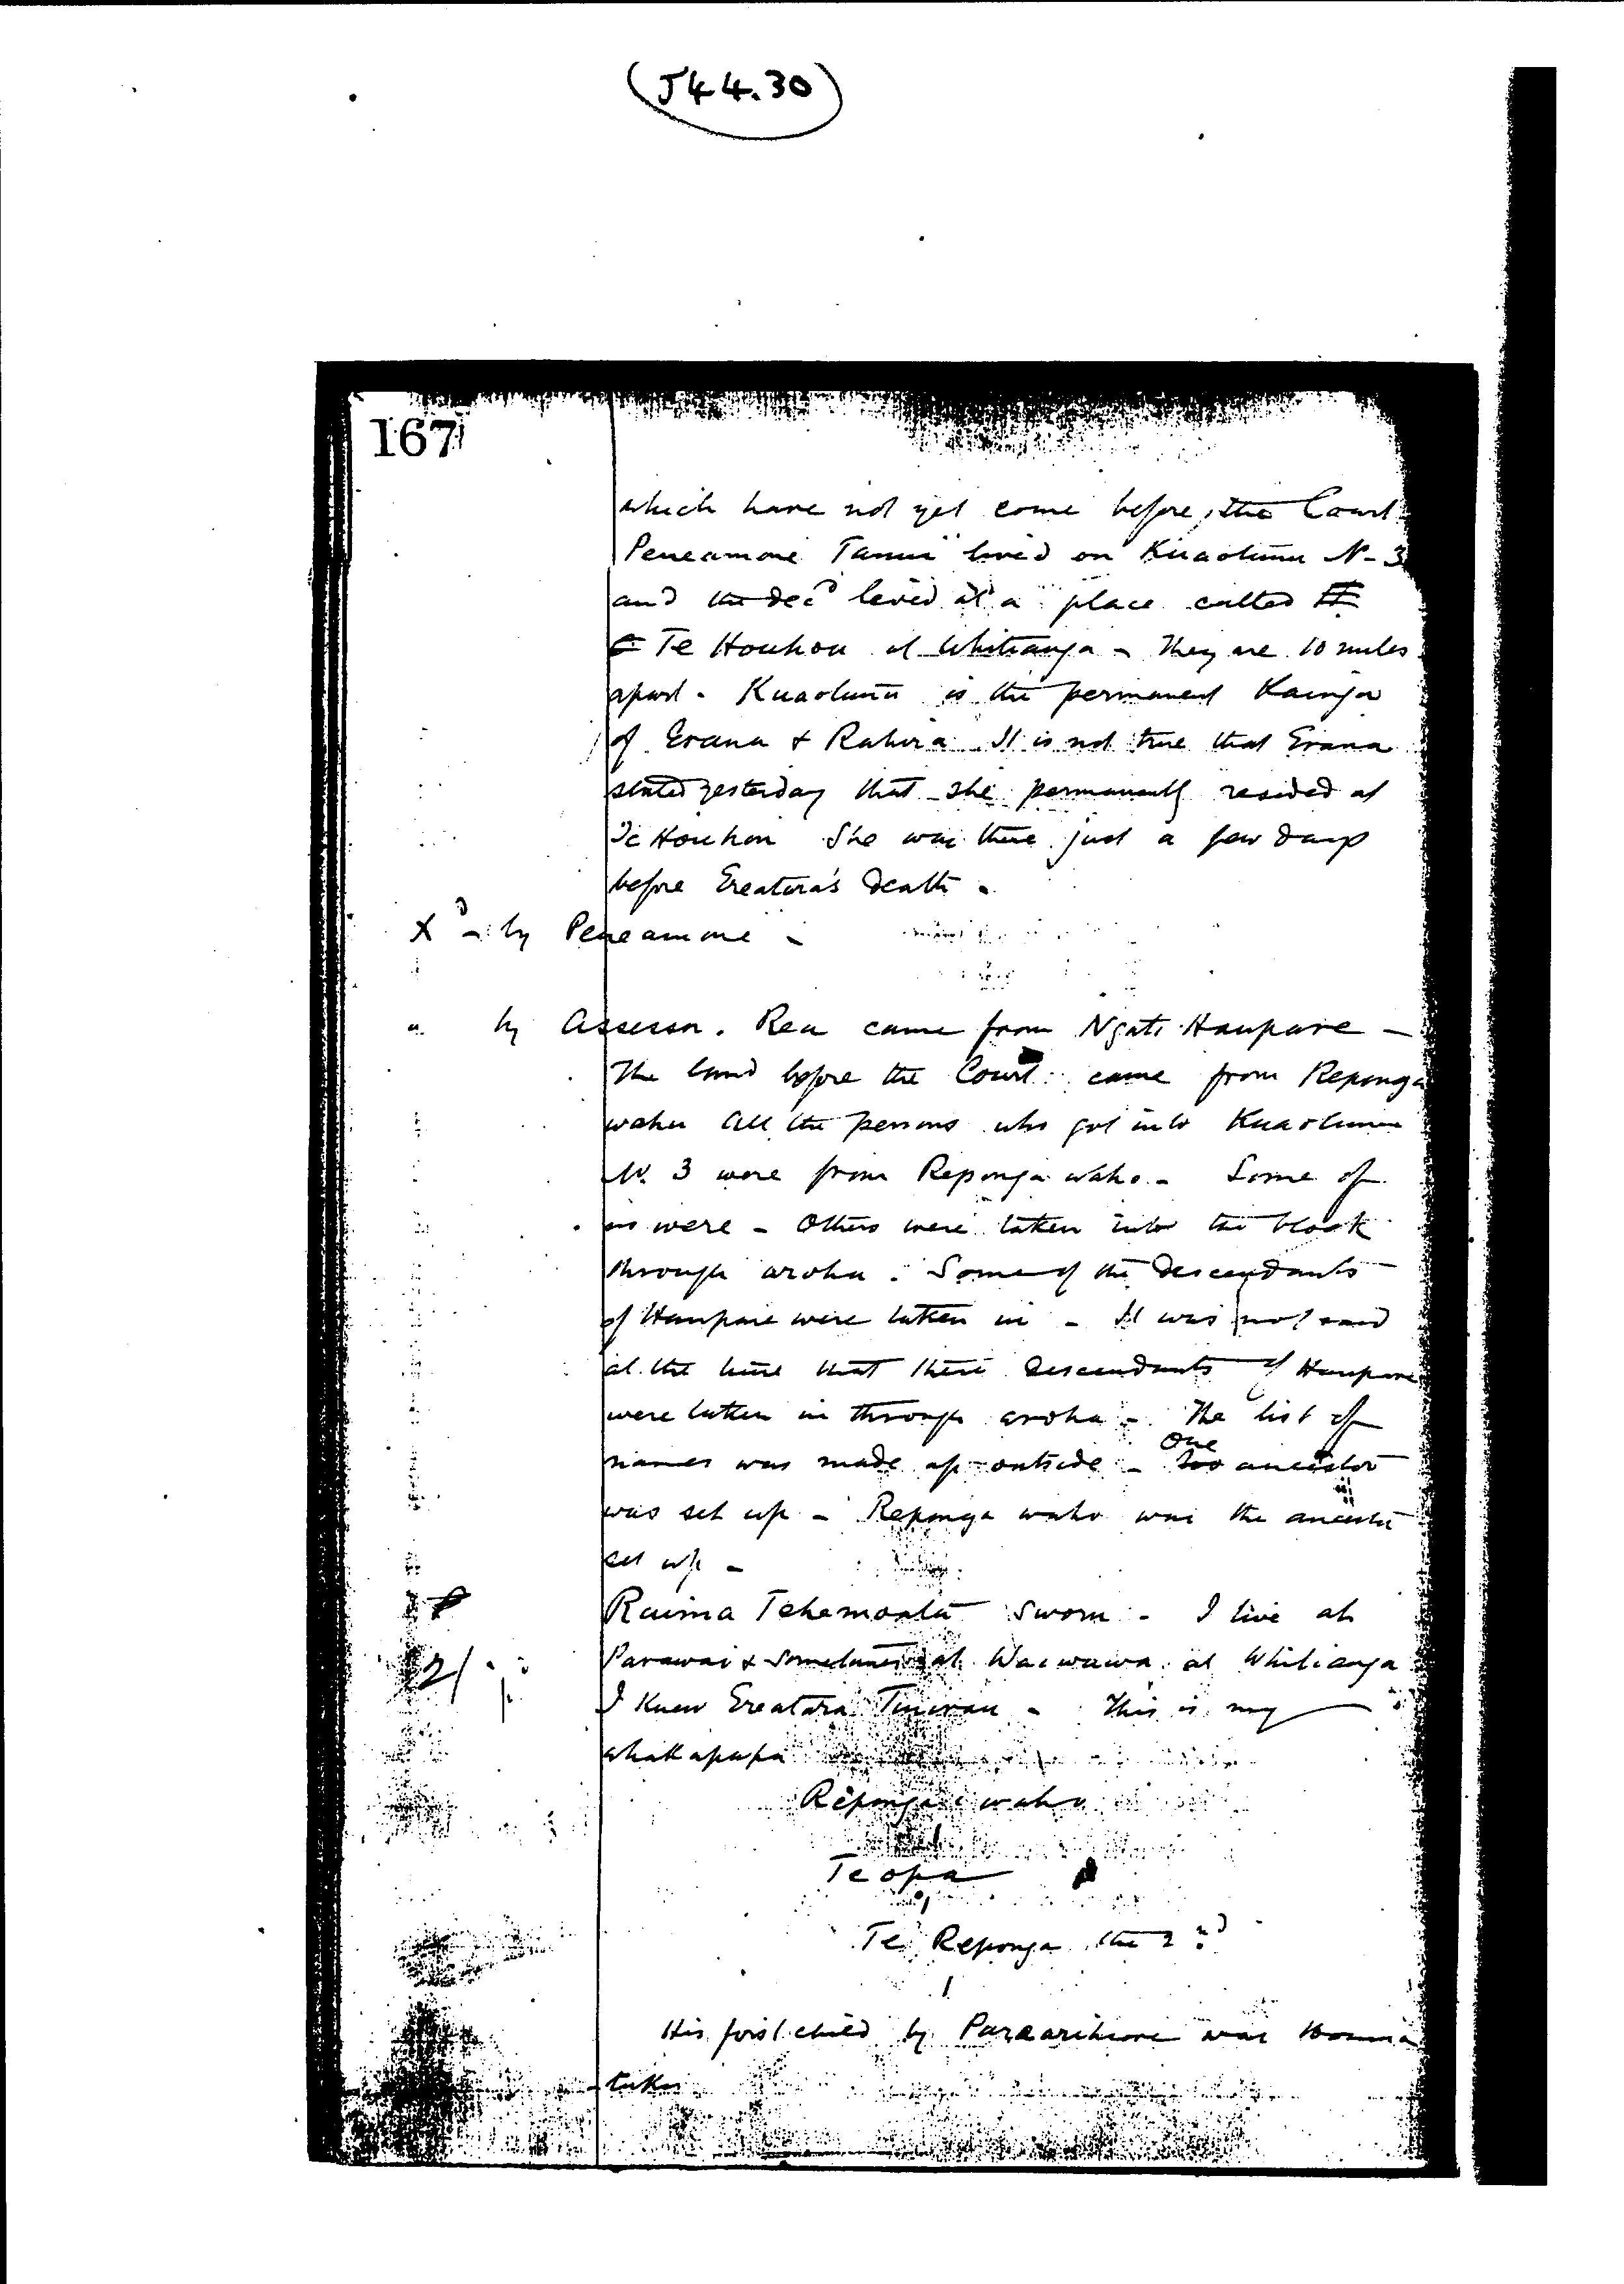 (J44.30)
167
which have not yet come before the Court
Peneamone Tanui lived on Kuaotunu No 3
and the decd lived at a place called
Te Houhou at Whitianga - They are 10 miles
apart. Kuaotunu is the permanent Kainga
of Erana & Rahira It is not true that Erana
stated yesterday that she permanently resided at
Te Houhou She was there just a few days
before Ereatara's death -
Xd by Peneamone -
" by Assessor. Rea came from Ngati Haupare -
The land before the Court came from Reponga
waho All the persons who got into Kuaotunu
No. 3 were from Reponga waho - Some of
us were - Others were taken into the block
through aroha. Some of the descendants
of Haupare were taken in - It was not said
at the time that these descendants of Haupare
were taken in through aroha - The list of
names was made up outside - One ancestor
was set up - Reponga waho was the ancestor
set up -
21
Raima Tehemoata Sworn - I live at
Parawai & sometimes at Waewawa at Whitianga
I knew Ereatara Tinirau - This is my
whakapapa
Reponga i waho
Te opa
Te Reponga the 2nd
His first child by Paraarihione was
tuku